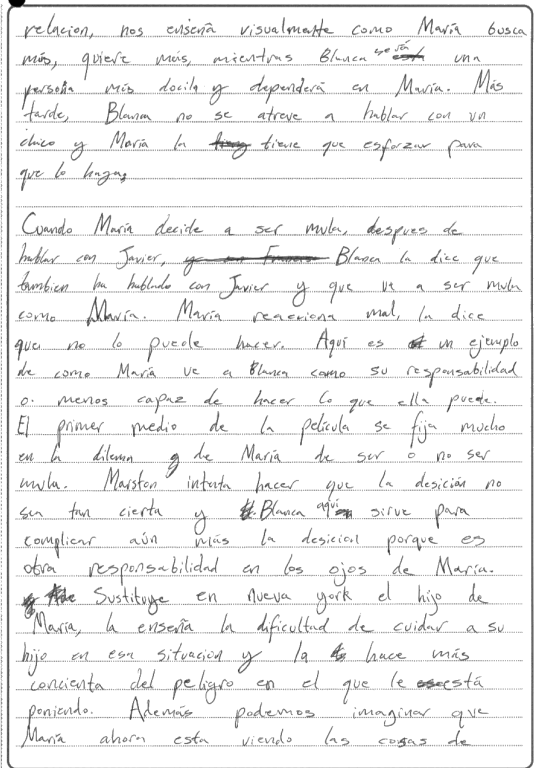 relacion, nos enseña visualmente como María busca
más, quiere más, mientras Blanca sería una
persona más docila y dependerá en María. Más
tarde, Blanca no se atreve a hablar con un
chico y María la tiene que esforzar para
que lo haga,
Cuando María decide a ser mula, despues de
hablar con Javier, Blanca la dice que
tambien ha hablado con Javier y que va a ser mula
como María. María reacciona mal, la dice
que no lo puede hacer. Aquí es un ejemplo
de como María ve a Blanca como su responsabilidad
o menos capaz de hacer lo que ella puede.
El primer medio de la película se fija mucho
en la dilema de María de ser o no ser
mula. Marston intenta hacer que la desición no
sea tan cierta y Blanca aquí sirve para
complicar aún más la desicion porque es
otra responsabilidad en los ojos de María.
Sustituye en nueva york el hijo de
María, la enseña la dificultad de cuidar a su
hijo en esa situacion y la hace más
concienta del peligro en el que le está
poniendo. Además podemos imaginar que
María ahora esta viendo las cosas de